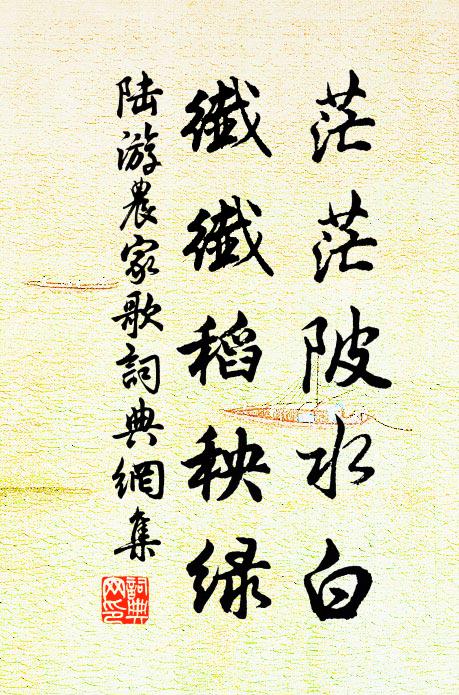 茫茫陂水白
纖纖稻秧綠
陆游農家歌詞典網集
詞典網印